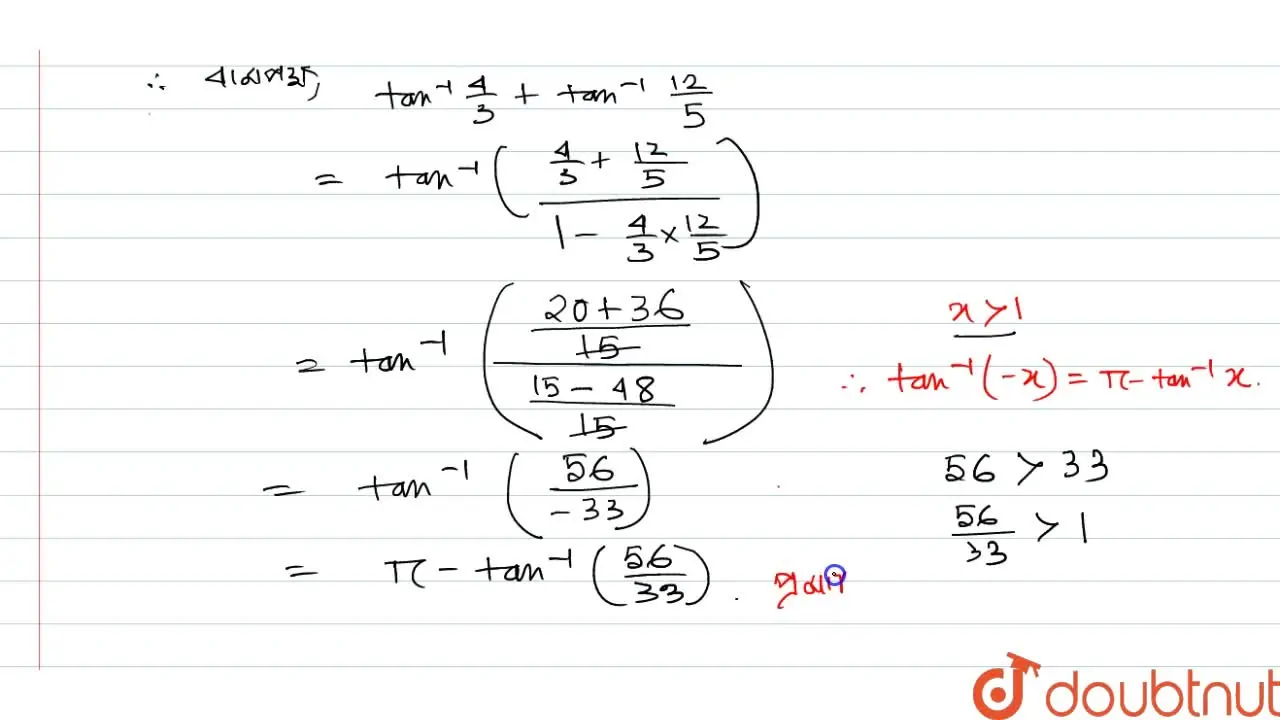 ∴ বামপক্ষ, tan⁻¹ 4/3 + tan⁻¹ 12/5
= tan⁻¹ ( (4/3 + 12/5) / (1 − 4/3 × 12/5) )
= tan⁻¹ ( ((20 + 36)/15) / ((15 − 48)/15) )
= tan⁻¹ ( 56 / −33 )
= π − tan⁻¹ ( 56/33 ) . প্রমাণ
x > 1
∴ tan⁻¹ (−x) = π − tan⁻¹ x .
56 > 33
56/33 > 1
doubtnut